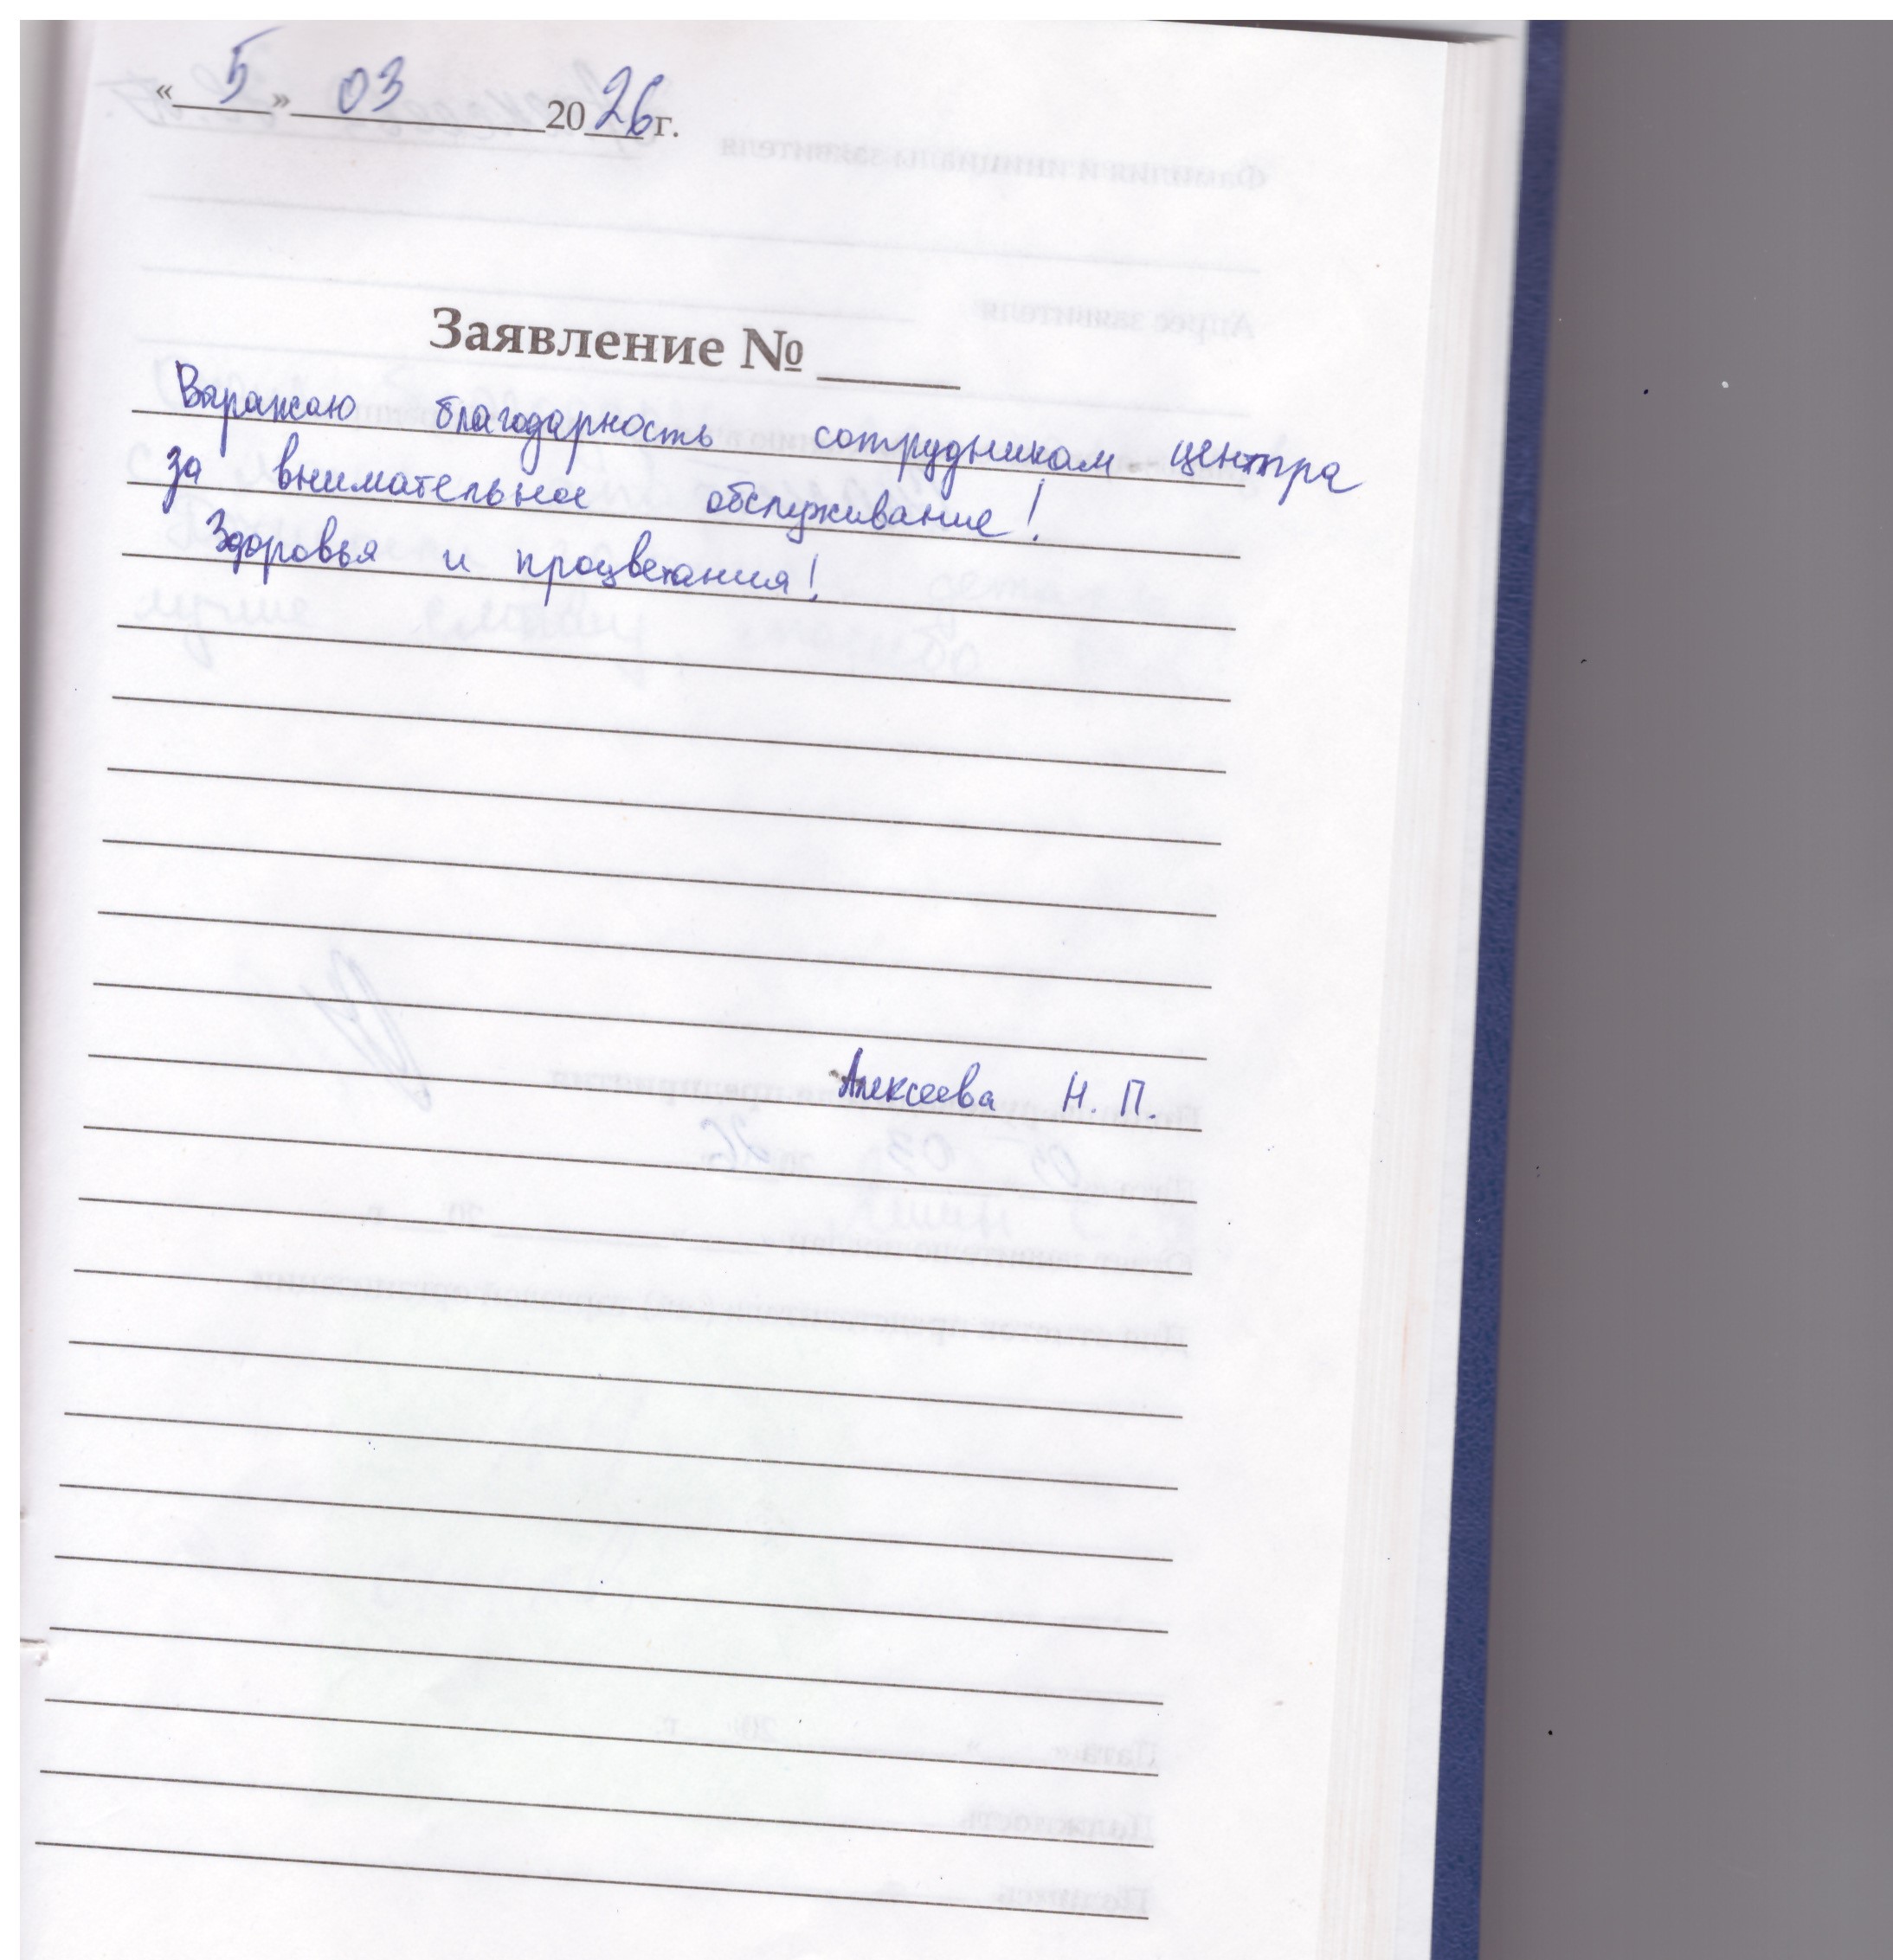 «5» 03 2026 г.
Заявление № ____
Выражаю благодарность сотрудникам центра
за внимательное обслуживание!
Здоровья и процветания!
Алексеева Н. П.